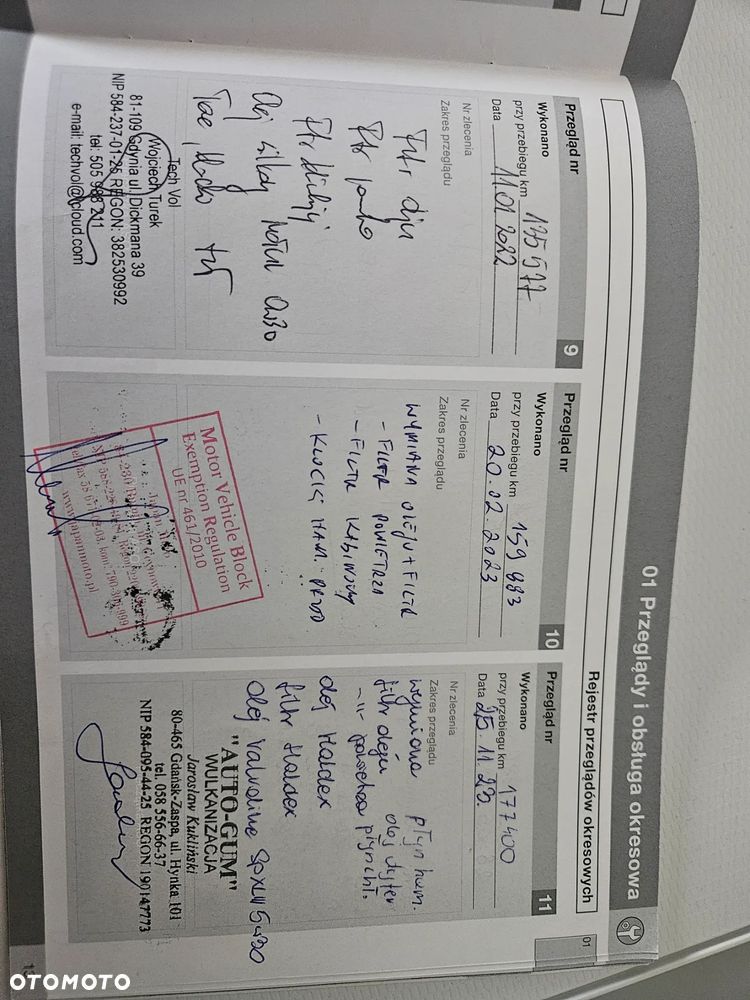 01 Przeglądy i obsługa okresowa
Rejestr przeglądów okresowych
01
Przegląd nr 9
Wykonano
przy przebiegu km 135 577
Data 11.01.2022
Nr zlecenia
Zakres przeglądu
Filtr oleju
Filtr
Olej silnik Motul 0W30
Tech Vol
Wojciech Turek
81-109 Gdynia ul. Dickmana 39
NIP 584-237-01-25 REGON: 382530992
tel: 505 988 211
e-mail: techvol@icloud.com
Przegląd nr 10
Wykonano
przy przebiegu km 159 883
Data 20.02.2023
Nr zlecenia
Zakres przeglądu
WYMIANA OLEJU + FILTR
- FILTR POWIETRZA
- FILTR KABINOWY
- KLOCKI HAM. PRZÓD
Motor Vehicle Block
Exemption Regulation
UE nr 461/2010
Przegląd nr 11
Wykonano
przy przebiegu km 177400
Data 25.11.23.
Nr zlecenia
Zakres przeglądu
wymiana płyn ham.
filtr oleju olej dyfer
-"- powietrza płyn chł.
olej Haldex
filtr Haldex
olej Valvoline 5W30
"AUTO-GUM"
WULKANIZACJA
Jarosław Kukliński
80-465 Gdańsk-Zaspa, ul. Hynka 101
tel. 058 556-66-37
NIP 584-095-44-25 REGON 190147773
OTOMOTO